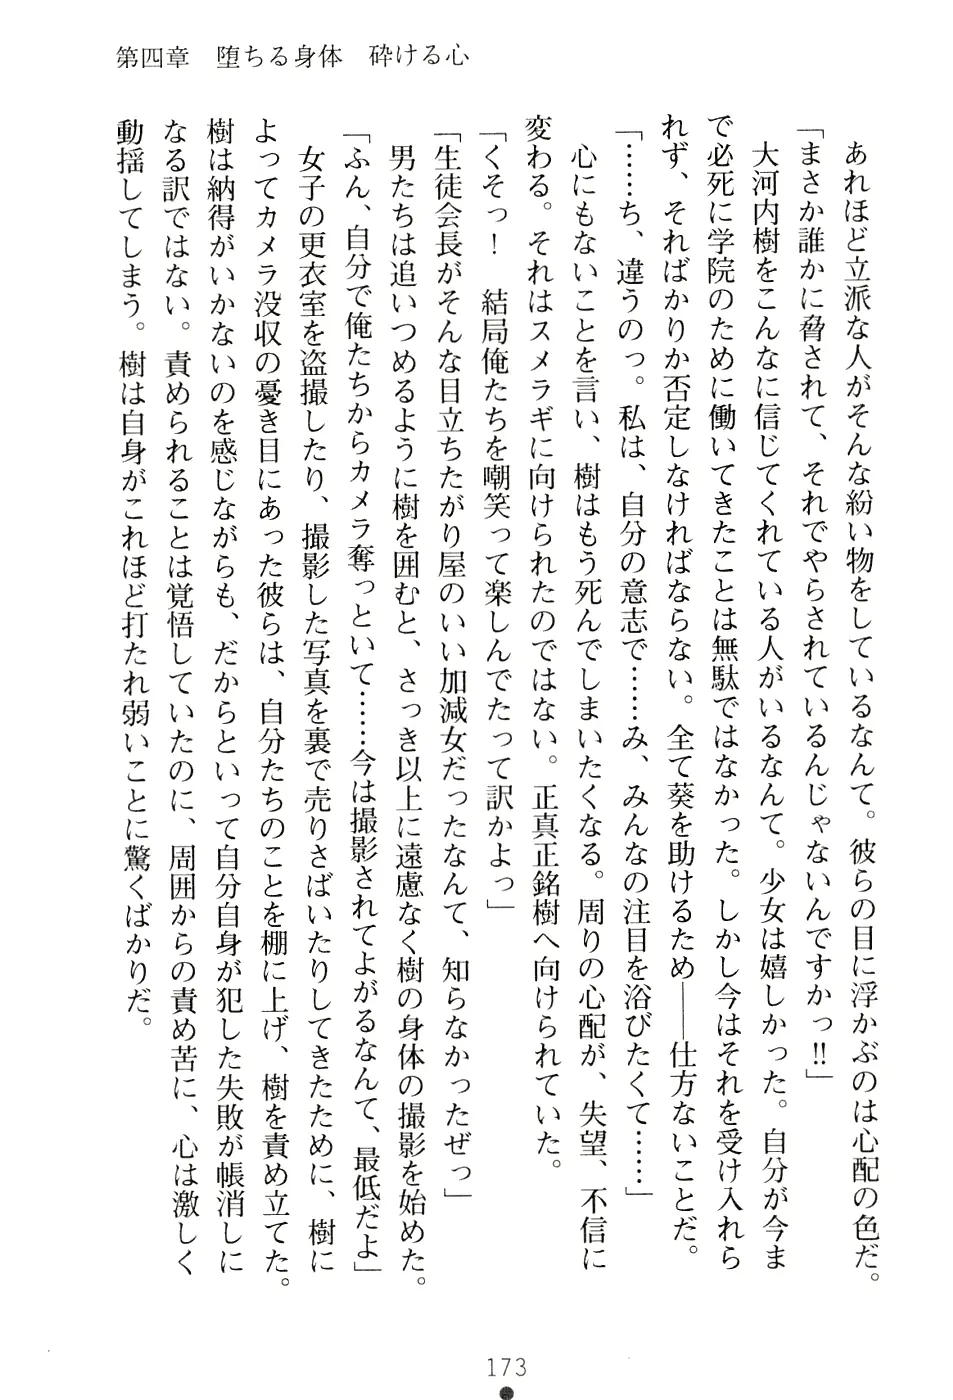 第四章　堕ちる身体　砕ける心
　あれほど立派な人がそんな紛い物をしているなんて。彼らの目に浮かぶのは心配の色だ。
「まさか誰かに脅されて、それでやらされているんじゃないんですかっ‼」
　大河内樹をこんなに信じてくれている人がいるなんて。少女は嬉しかった。自分が今ま
で必死に学院のために働いてきたことは無駄ではなかった。しかし今はそれを受け入れら
れず、そればかりか否定しなければならない。全て葵を助けるため――仕方ないことだ。
「……ち、違うのっ。私は、自分の意志で……み、みんなの注目を浴びたくて……」
　心にもないことを言い、樹はもう死んでしまいたくなる。周りの心配が、失望、不信に
変わる。それはスメラギに向けられたのではない。正真正銘樹へ向けられていた。
「くそっ！　結局俺たちを嘲笑って楽しんでたって訳かよっ」
「生徒会長がそんな目立ちたがり屋のいい加減女だったなんて、知らなかったぜっ」
　男たちは追いつめるように樹を囲むと、さっき以上に遠慮なく樹の身体の撮影を始めた。
「ふん、自分で俺たちからカメラ奪っといて……今は撮影されてよがるなんて、最低だよ」
　女子の更衣室を盗撮したり、撮影した写真を裏で売りさばいたりしてきたために、樹に
よってカメラ没収の憂き目にあった彼らは、自分たちのことを棚に上げ、樹を責め立てた。
樹は納得がいかないのを感じながらも、だからといって自分自身が犯した失敗が帳消しに
なる訳ではない。責められることは覚悟していたのに、周囲からの責め苦に、心は激しく
動揺してしまう。樹は自身がこれほど打たれ弱いことに驚くばかりだ。
173